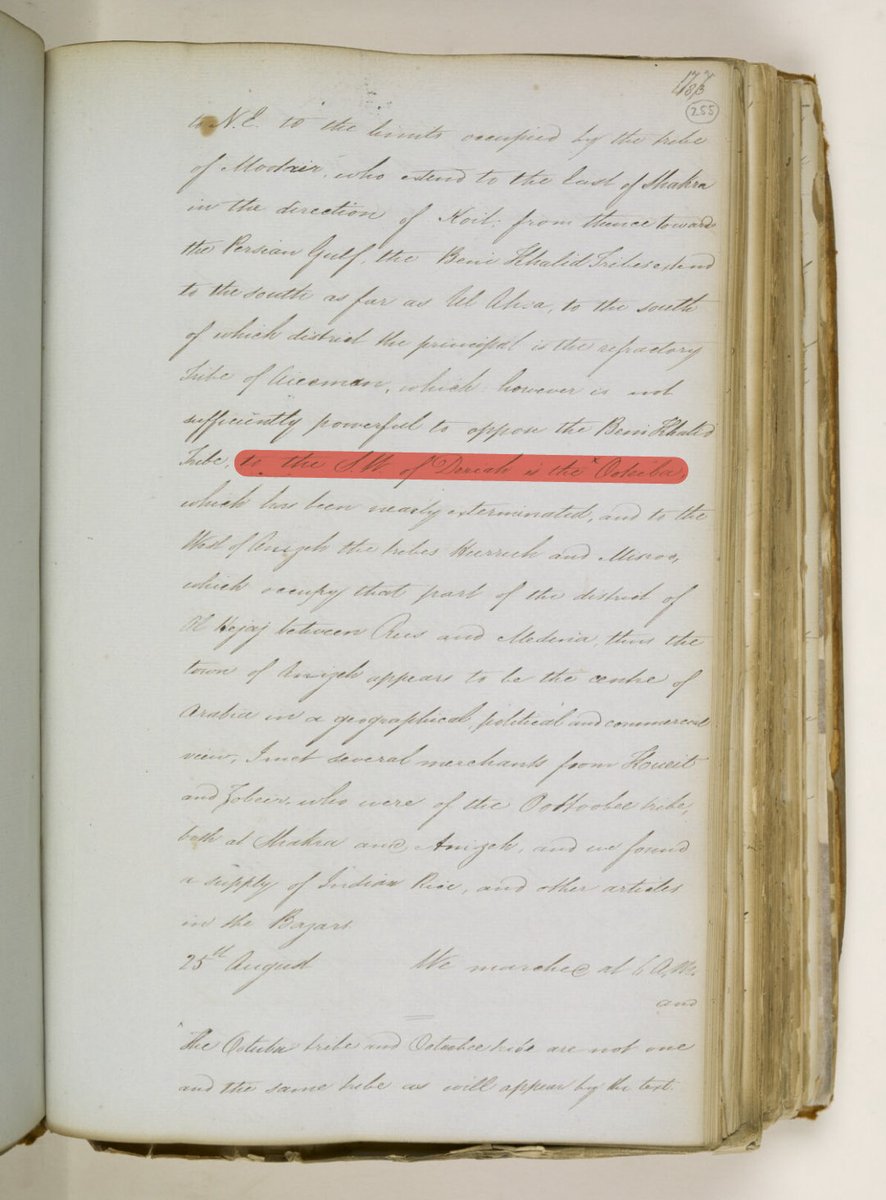 255
to N.E. to the limits occupied by the tribe
of Modzir, who extend to the East of Shakra
in the direction of Koit; from thence toward
the Persian Gulf, the Beni Khalid Tribes extend
to the south as far as Ul Ahsa, to the south
of which district the principal is the refractory
Tribe of which however is not
sufficiently powerful to oppose the Beni Khalid
Tribe, to the S.W. of Deriah is the "Ootuba,
which has been nearly exterminated, and to the
West of Anizeh the tribes and
which occupy that part of the district of
Ul Hejaj between and Medina, thus the
town of Anizeh appears to be the centre of
Arabia in a geographical, political and commercial
view, I met several merchants from Koueit
and Zobeir, who were of the Oottoobee tribe,
both at Shakra and Anizeh, and we found
a supply of Indian Rice, and other articles
in the Bazars.
25th August We marched at 6 A.M.
and
"The Ootuba tribe and Ootoobee tribe are not one
and the same tribe as will appear by the text.